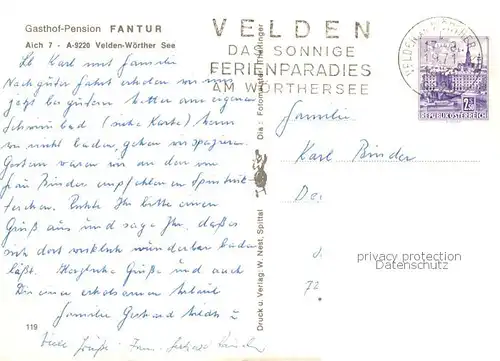 Gasthof-Pension FANTUR
Aich 7 - A-9220 Velden-Wörther See
Lb Karl mit Familie
Nach guter Fahrt erholen wir uns
jetzt bei gutem Wetter am eigenen
Schwimmbad (siehe Karte) wenn
wir nicht baden, gehen wir spazieren.
Gestern waren wir an der von
Frau Binder empfohlenen
Richte Ihr bitte einen
Gruß aus und sage Ihr, daß es
sich dort wirklich wunderbar baden
läßt. Herzliche Grüße und auch
Dir einen erholsamen Urlaub
Familie Gerhard
Viele Grüße
119
Dia: Fotomeister
Druck u. Verlag: W. Nest, Spittal
VELDEN
DAS SONNIGE
FERIENPARADIES
AM WÖRTHERSEE
VELDEN AM WÖRTHER
2
REPUBLIK ÖSTERREICH
Familie
Karl Binder
72
privates Angebot
Datenschutz